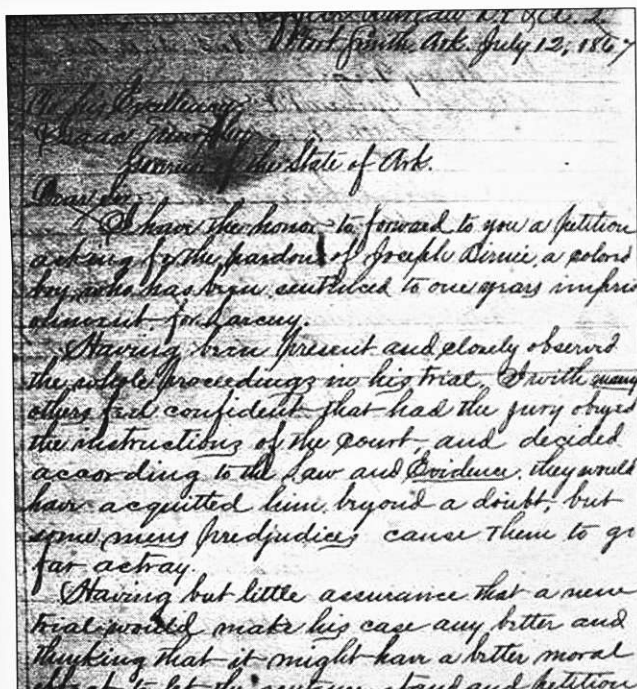 Fort Smith, Ark. July 12, 1867
To his Excellency
Isaac Murphy
Governor of the State of Ark.
Dear Sir
I have the honor to forward to you a petition
asking for the pardon of Joseph Dirnie, a colord
boy, who has been sentenced to one years impris
onment for Larceny.
Having been present and closely observed
the whole proceedings in his trial, I with many
others feel confident that had the jury obeyed
the instructions of the Court, and decided
according to the Law and Evidence, they would
have acquitted him beyond a doubt, but
some mens predjudices cause them to go
far astray.
Having but little assurance that a new
trial would make his case any better and
thinking that it might have a better moral
to let the sentence stand and petition